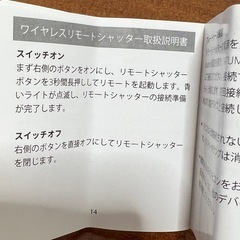 ワイヤレスリモートシャッター取扱説明書
スイッチオン
まず右側のボタンをオンにし、リモートシャッター
ボタンを3秒間長押ししてリモートを起動します。青
いライトが点滅し、リモートシャッターの接続準備
が完了します。
スイッチオフ
右側のボタンを直接オフにしてリモートシャッター
を閉じます。
14